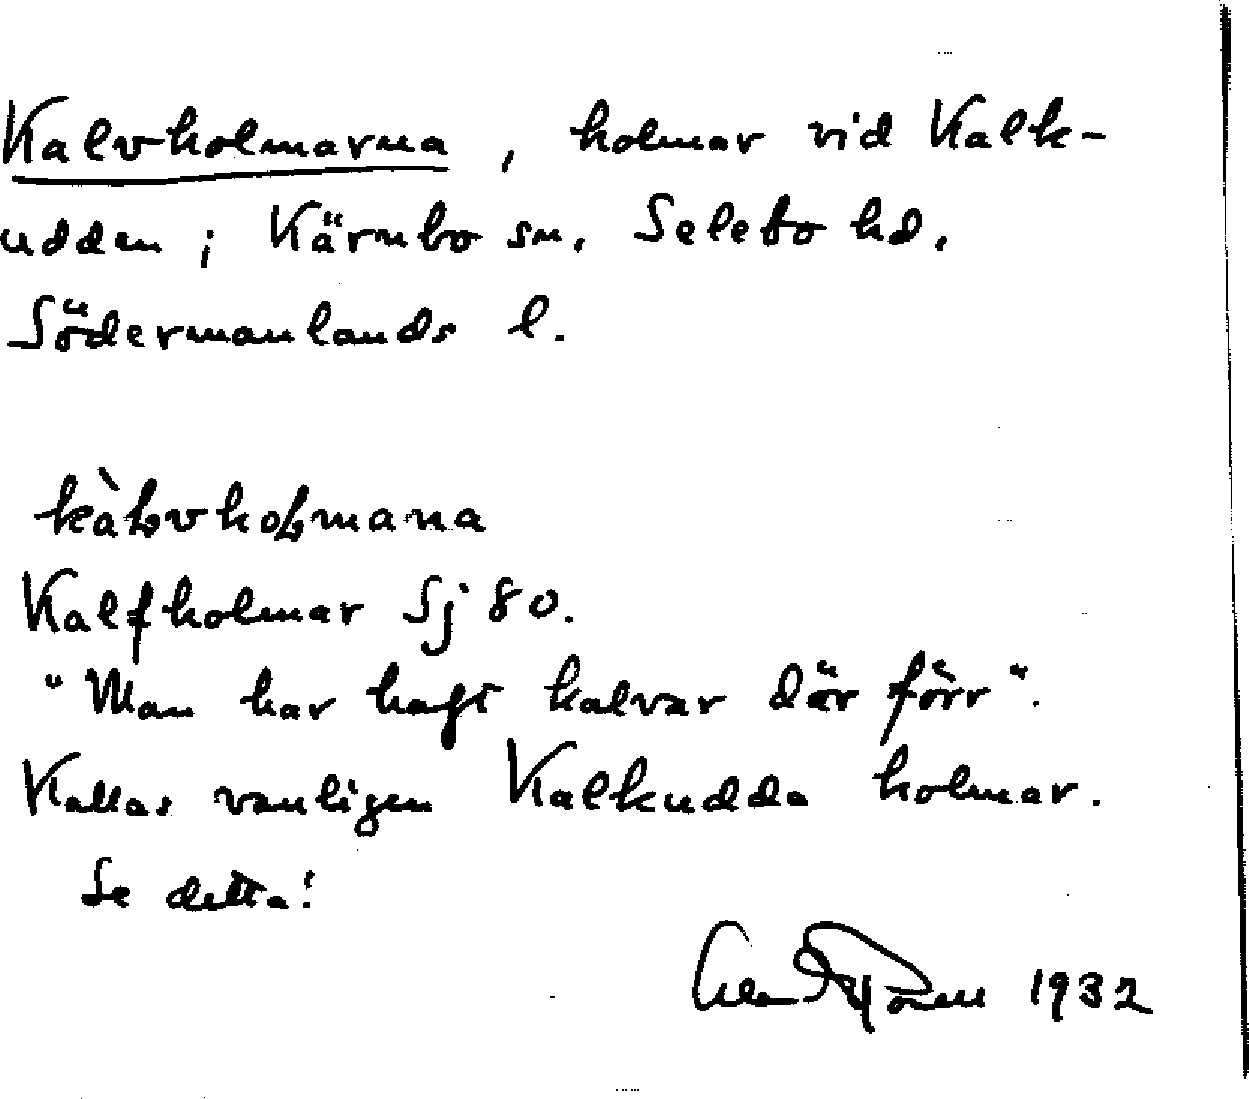 Kalvholmarna, holmar vid Kalk-
udden i Kärnbo sn. Selebo hd.
Södermanlands l.
kàłvhołmana
Kalfholmar Sj 80.
"Man har haft kalvar där förr".
Kallas vanligen Kalkudda holmar.
Se detta!
1932